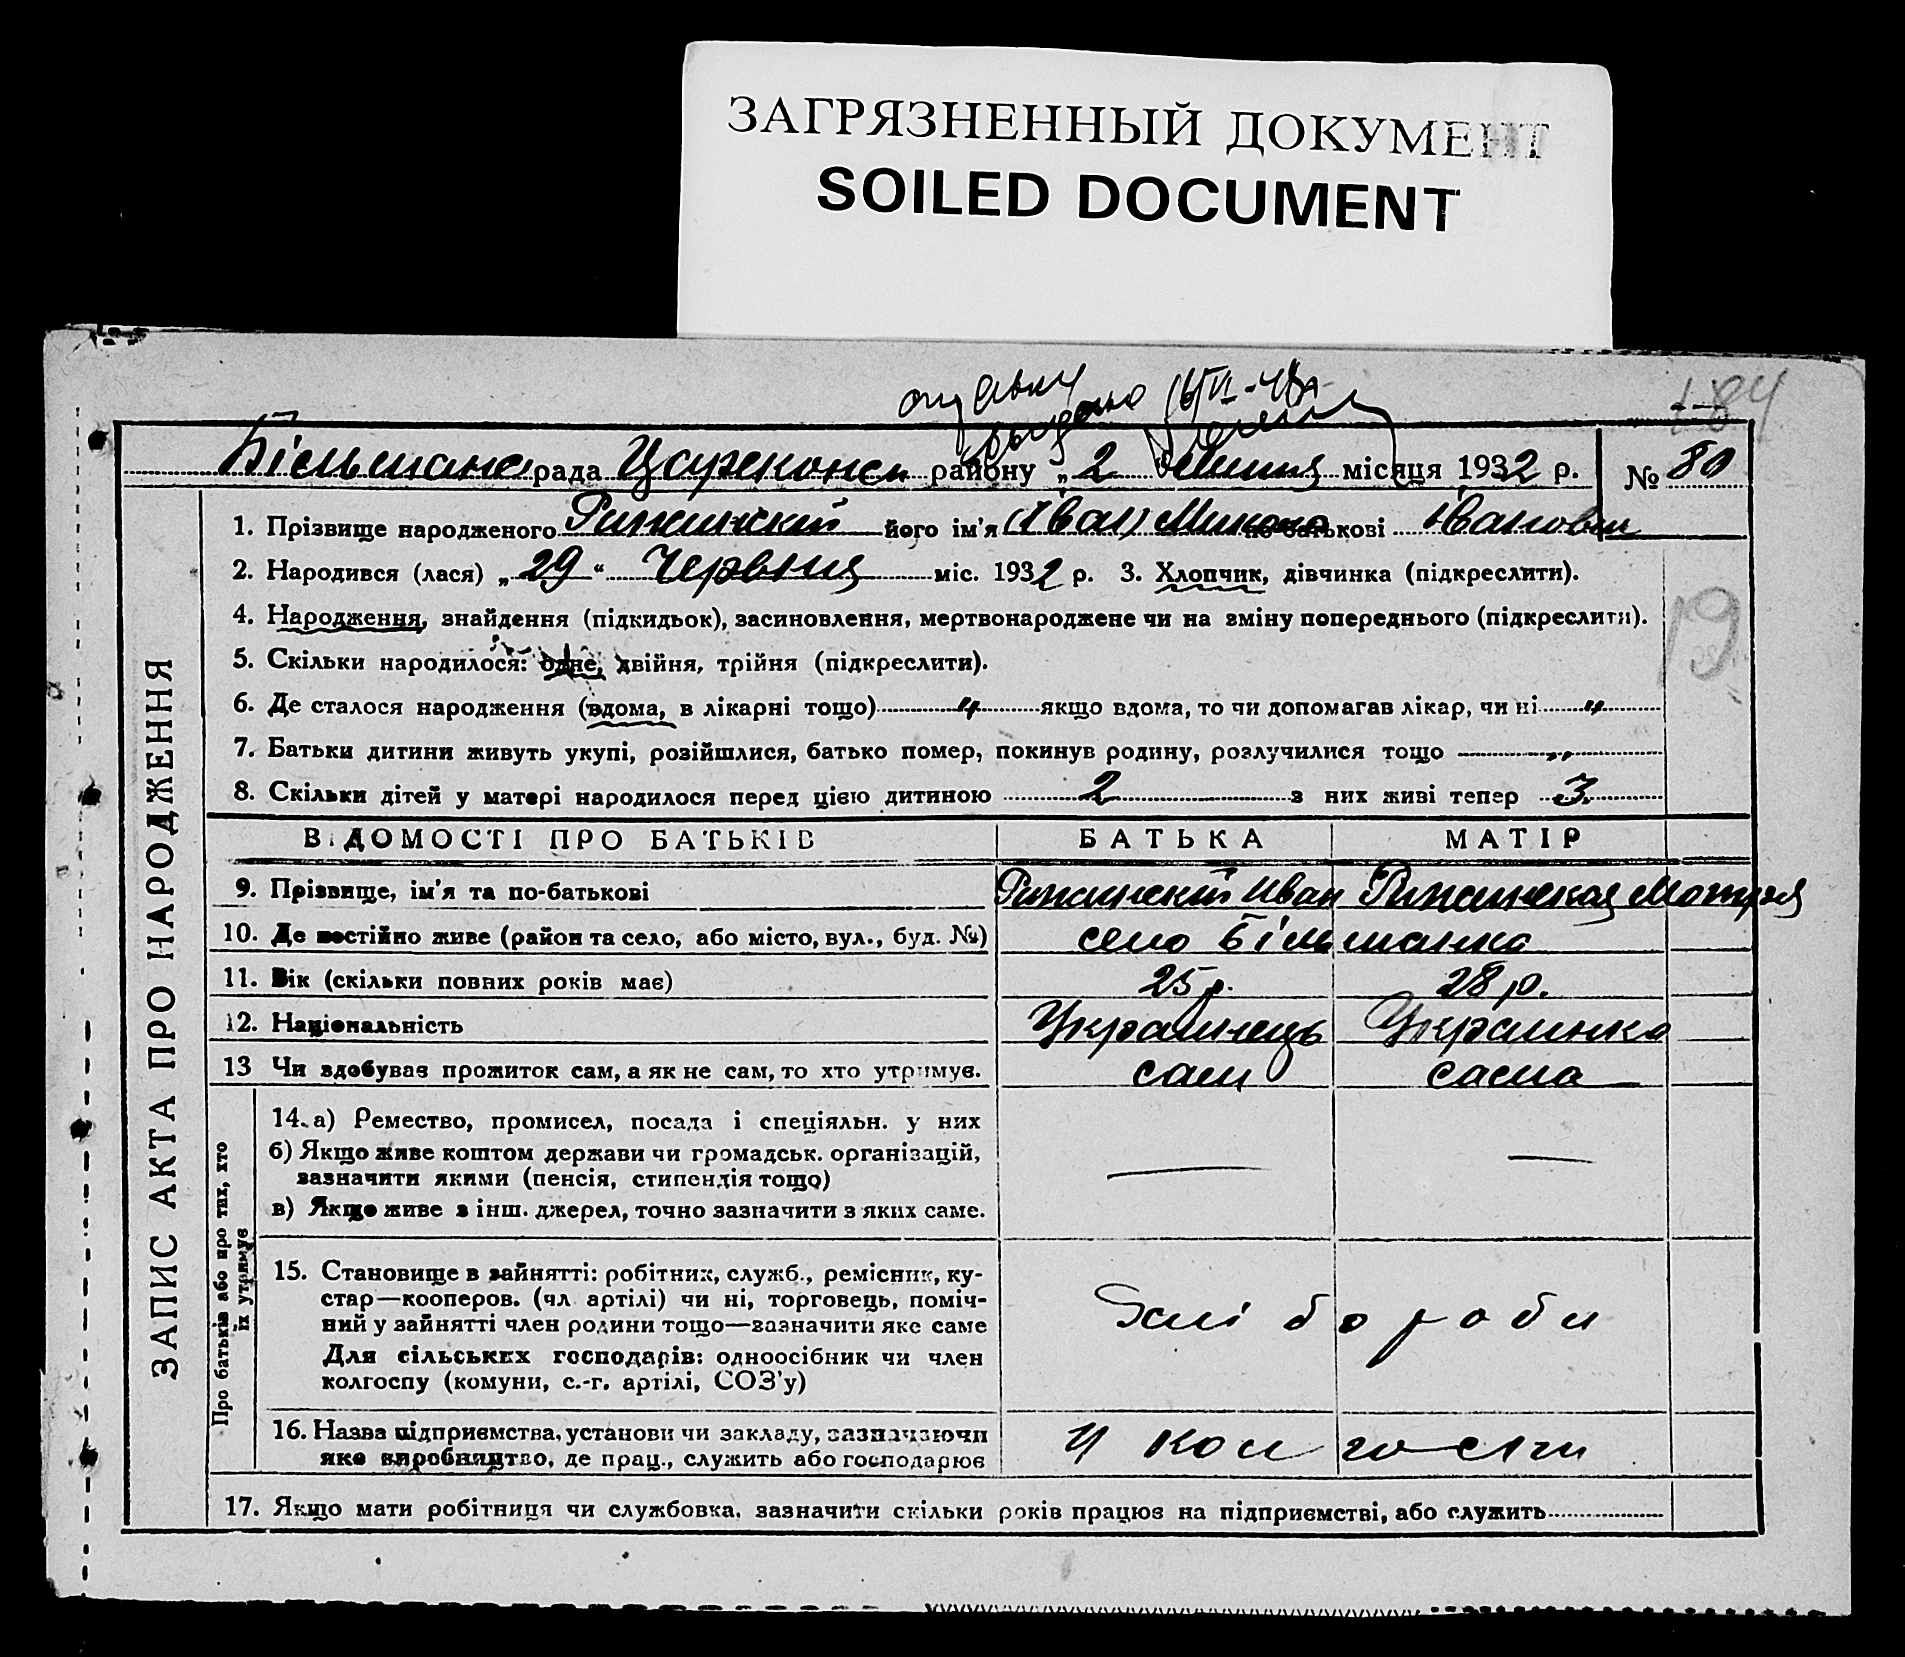 ЗАГРЯЗНЕННЫЙ ДОКУМЕНТ
SOILED DOCUMENT
184
рада району „2 Липня місяця 1932 р. № 80
ЗАПИС АКТА ПРО НАРОДЖЕННЯ
1. Прізвище народженого його ім'я (Іван) Микола по батькові Іванович
2. Народився (лася) „29“ Червня міс. 1932 р. 3. Хлопчик, дівчинка (підкреслити).
4. Народження, знайдення (підкидьок), засиновлення, мертвонароджене чи на зміну попереднього (підкреслити).
19
5. Скільки народилося: одне, двійня, трійня (підкреслити).
6. Де сталося народження (вдома, в лікарні тощо) „ якщо вдома, то чи допомагав лікар, чи ні „
7. Батьки дитини живуть укупі, розійшлися, батько помер, покинув родину, розлучилися тощо „
8. Скільки дітей у матері народилося перед цією дитиною 2 з них живі тепер 3.
ВІДОМОСТІ ПРО БАТЬКІВ БАТЬКА МАТІР
9. Прізвище, ім'я та по-батькові Иван Мотря
10. Де постійно живе (район та село, або місто, вул., буд. №) село Більшанка
11. Вік (скільки повних років має) 25 р. 28 р.
12. Національність Українець Украинка
13 Чи здобував прожиток сам, а як не сам, то хто утримує. сам сама
Про батьків або про тих, хто їх утримує
14. а) Ремество, промисел, посада і спеціяльн. у них
б) Якщо живе коштом держави чи громадськ. організацій,
зазначити якими (пенсія, стипендія тощо) — —
в) Якщо живе з інш. джерел, точно зазначити з яких саме.
15. Становище в зайнятті: робітник, служб., ремісник, ку-
стар—кооперов. (чл. артілі) чи ні, торговець, поміч-
ний у зайнятті член родини тощо—зазначити яке саме
Для сільських господарів: одноосібник чи член
колгоспу (комуни, с.-г. артілі, СОЗ'у)
хлібороби
16. Назва підприємства, установи чи закладу, зазначаючи
яке виробництво, де прац., служить або господарює
у колгоспи
17. Якщо мати робітниця чи службовка, зазначити скільки років працює на підприємстві, або служить